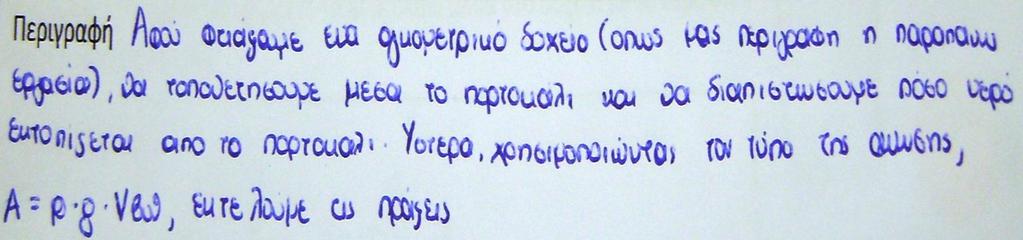 Περιγραφή Αφού φτιάξαμε ενα ογκομετρικό δοχείο (οπως μας περιγραφη η παραπανω
εργασια), θα τοποθετησουμε μεσα το πορτοκαλι και θα διαπιστωσουμε πόσο νερό
εκτοπιζεται απο το πορτοκαλι. Υστερα, χρησιμοποιώντας τον τύπο της ανωσης,
Α = ρ·g·Vβυθ, εκτελουμε τις πράξεις